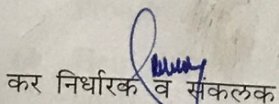 कर निर्धारक व संकलक